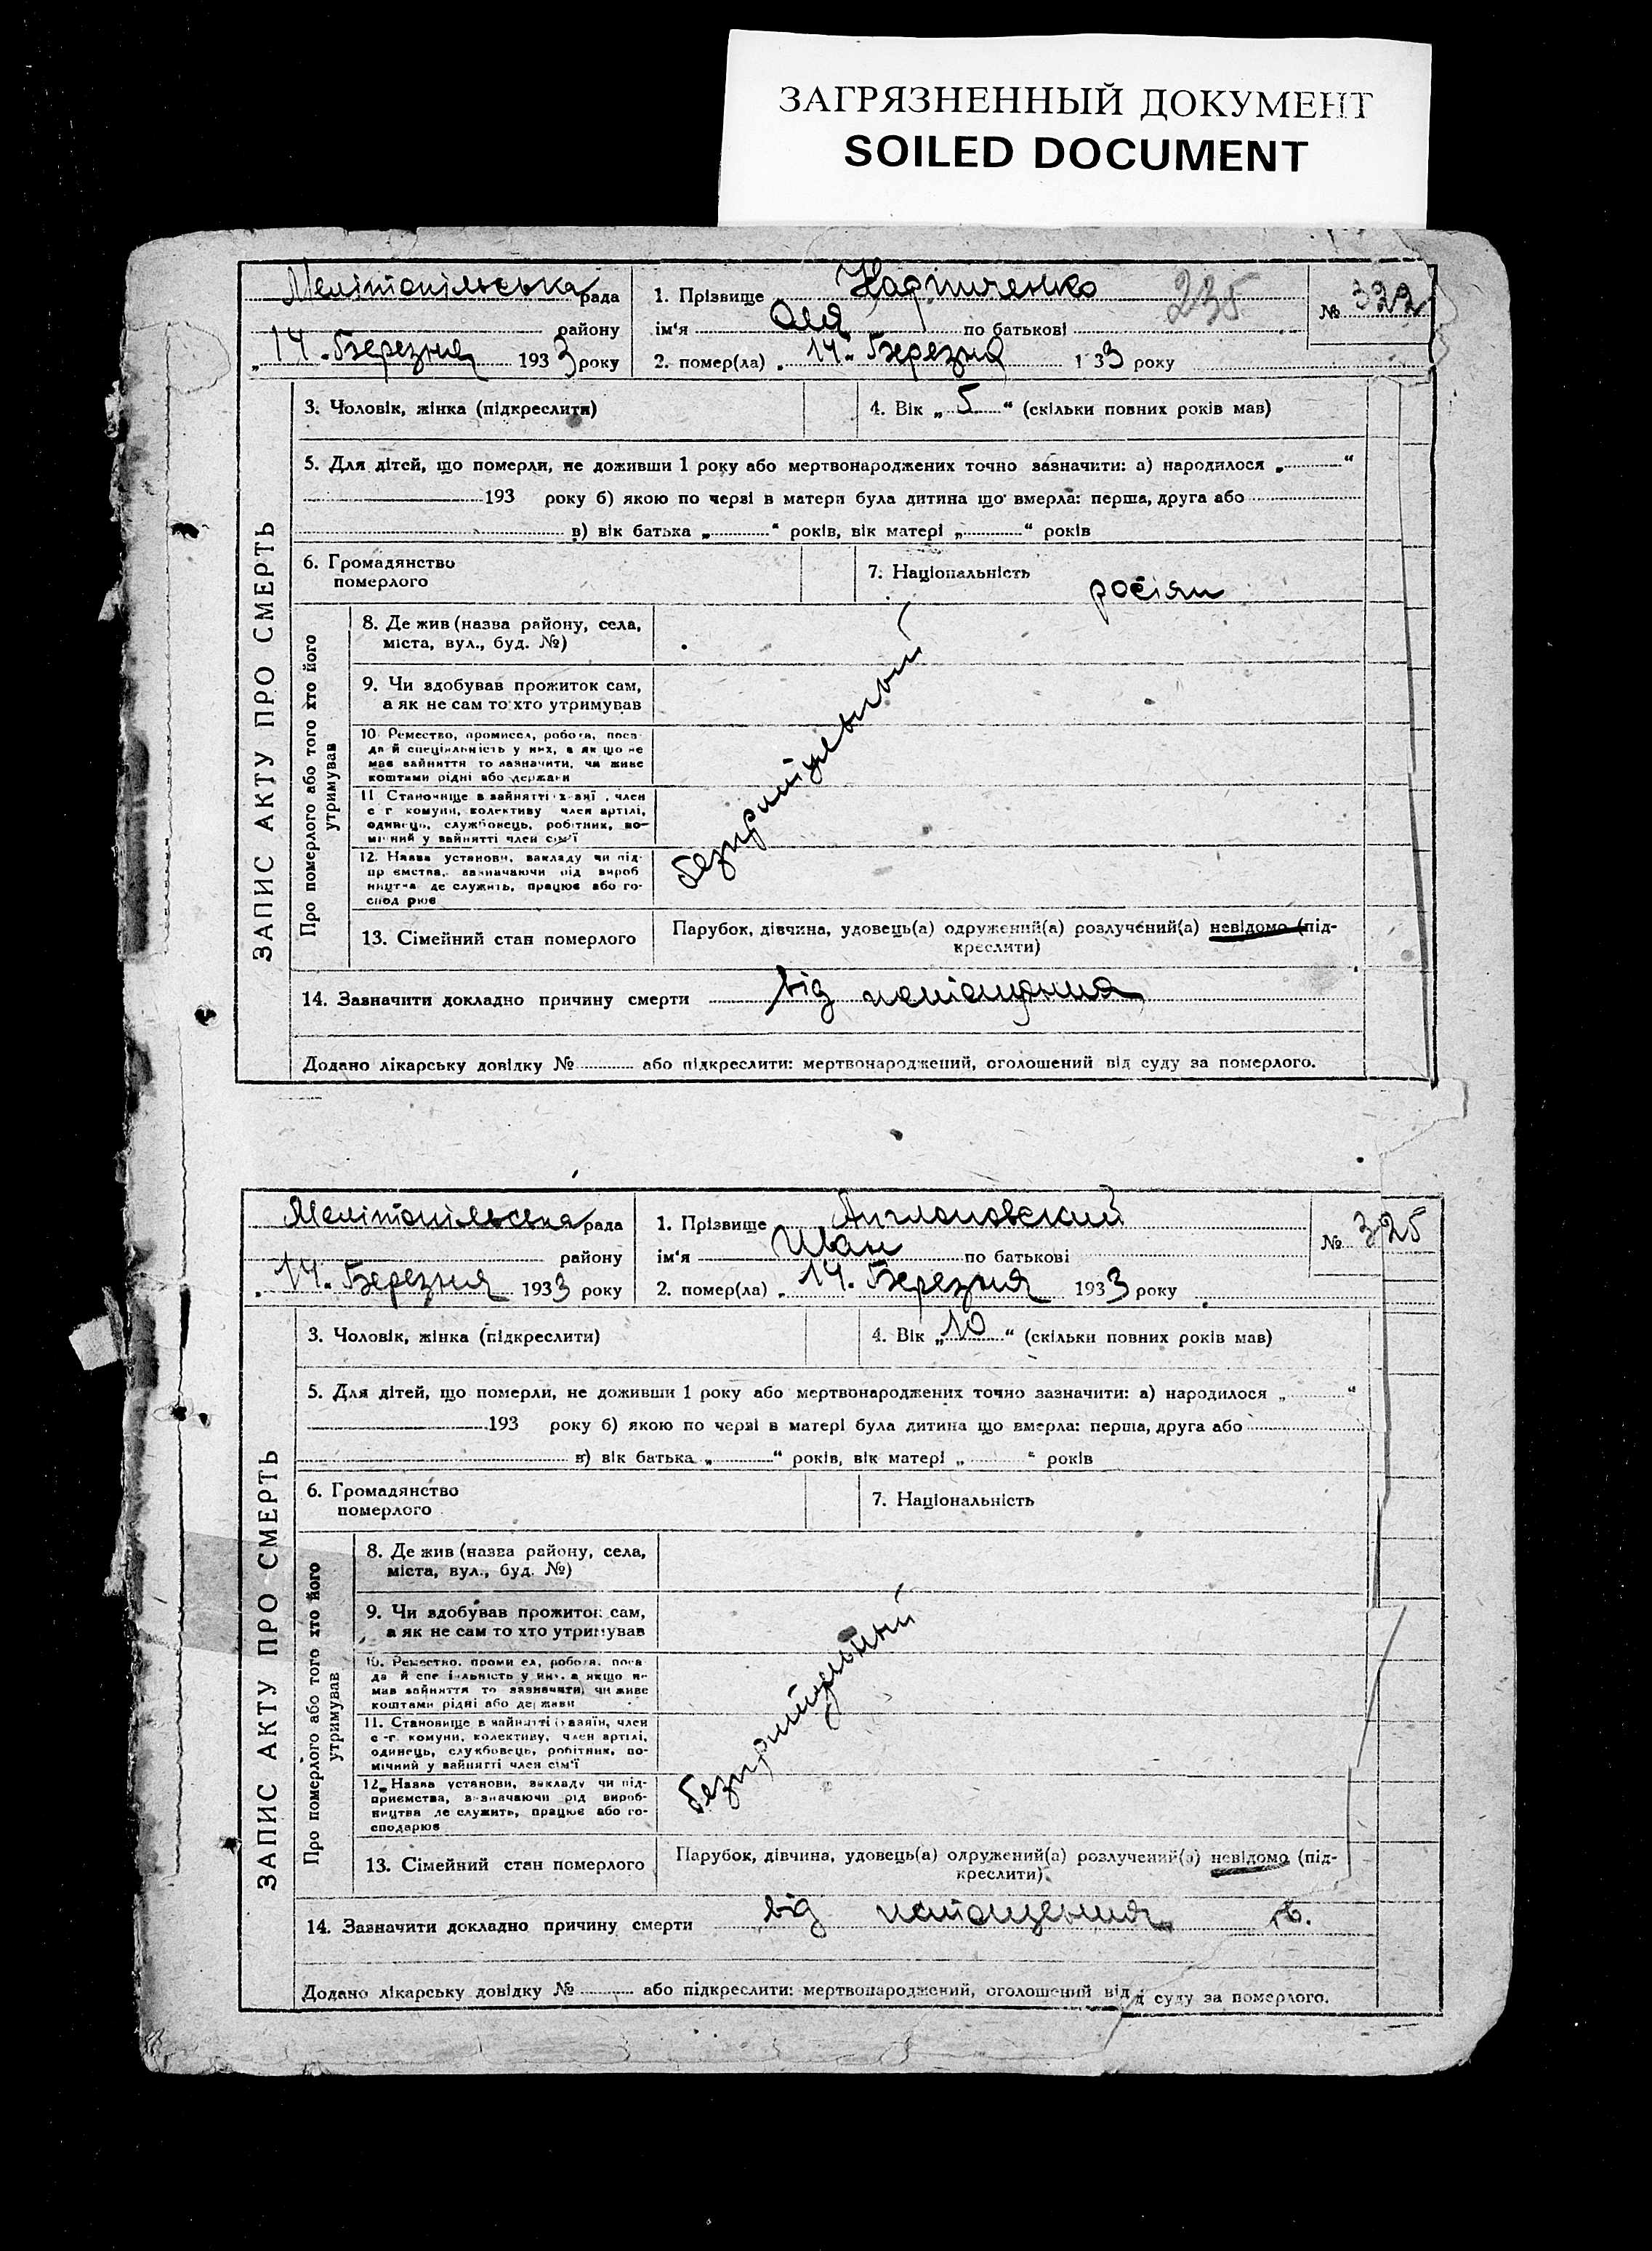 ЗАГРЯЗНЕННЫЙ ДОКУМЕНТ
SOILED DOCUMENT
Мелітопільська рада
1. Прізвище
235
№ 322
району
ім'я Оля по батькові
14. Березня 1933 року
2. помер(ла) 14. Березня 1 33 року
ЗАПИС АКТУ ПРО СМЕРТЬ
3. Чоловік, жінка (підкреслити)
4. Вік „ 5 “ (скільки повних років мав)
5. Для дітей, що померли, не доживши 1 року або мертвонароджених точно зазначити: а) народилося „ “
193 року б) якою по черзі в матери була дитина що вмерла: перша, друга або
в) вік батька „ “ років, вік матері „ “ років
6. Громадянство
померлого
7. Національність
росіян
Про померлого або того хто його
утримував
8. Де жив (назва району, села,
міста, вул., буд. №)
9. Чи здобував прожиток сам,
а як не сам то хто утримував
10 Ремество, промисел, робота, поса-
да й спеціяльність у них, а як що не
має зайняття то зазначити, чи живе
коштами рідні або держави
11 Становище в зайнятті член
с г комуни, колективу член артілі,
одинець, службовець, робітник, по-
мічний у зайнятті член сім'ї
12. Назва установи, закладу чи під-
пр ємства, зазначаючи рід вироб
ництва де служить, працює або го-
спод рює
безпритульный
13. Сімейний стан померлого
Парубок, дівчина, удовець(а) одружений(а) розлучений(а) невідомо (під-
креслити)
14. Зазначити докладно причину смерти від
Додано лікарську довідку № або підкреслити: мертвонароджений, оголошений від суду за померлого.
Мелітопільська рада
1. Прізвище
№ 325
району
ім'я Иван по батькові
14. Березня 1933 року
2. помер(ла) „ 14. Березня 1933 року
ЗАПИС АКТУ ПРО СМЕРТЬ
3. Чоловік, жінка (підкреслити)
4. Вік „ 10 “ (скільки повних років мав)
5. Для дітей, що померли, не доживши 1 року або мертвонароджених точно зазначити: а) народилося „ “
193 року б) якою по черзі в матері була дитина що вмерла: перша, друга або
в) вік батька „ “ років, вік матері „ “ років
6. Громадянство
померлого
7. Національність
Про померлого або того хто його
утримував
8. Де жив (назва району, села,
міста, вул., буд. №)
9. Чи здобував прожиток сам,
а як не сам то хто утримував
10. Ремество, промисел, робота, поса
да й спеціяльність у них, а якщо не
мав зайняття то зазначити, чи живе
коштами рідні або держави
11. Становище в зайнятті член
с-г. комуни, колективу, член артілі,
одинець, службовець, робітник, по-
мічний у зайнятті член сім'ї
12. Назва установи, закладу чи під-
приємства, зазначаючи рід вироб-
ництва де служить, працює або го-
сподарює
безпритульный
13. Сімейний стан померлого
Парубок, дівчина, удовець(а) одружений(а) розлучений(а) невідомо (під-
креслити)
14. Зазначити докладно причину смерти від
Додано лікарську довідку № або підкреслити: мертвонароджений, оголошений від суду за померлого.